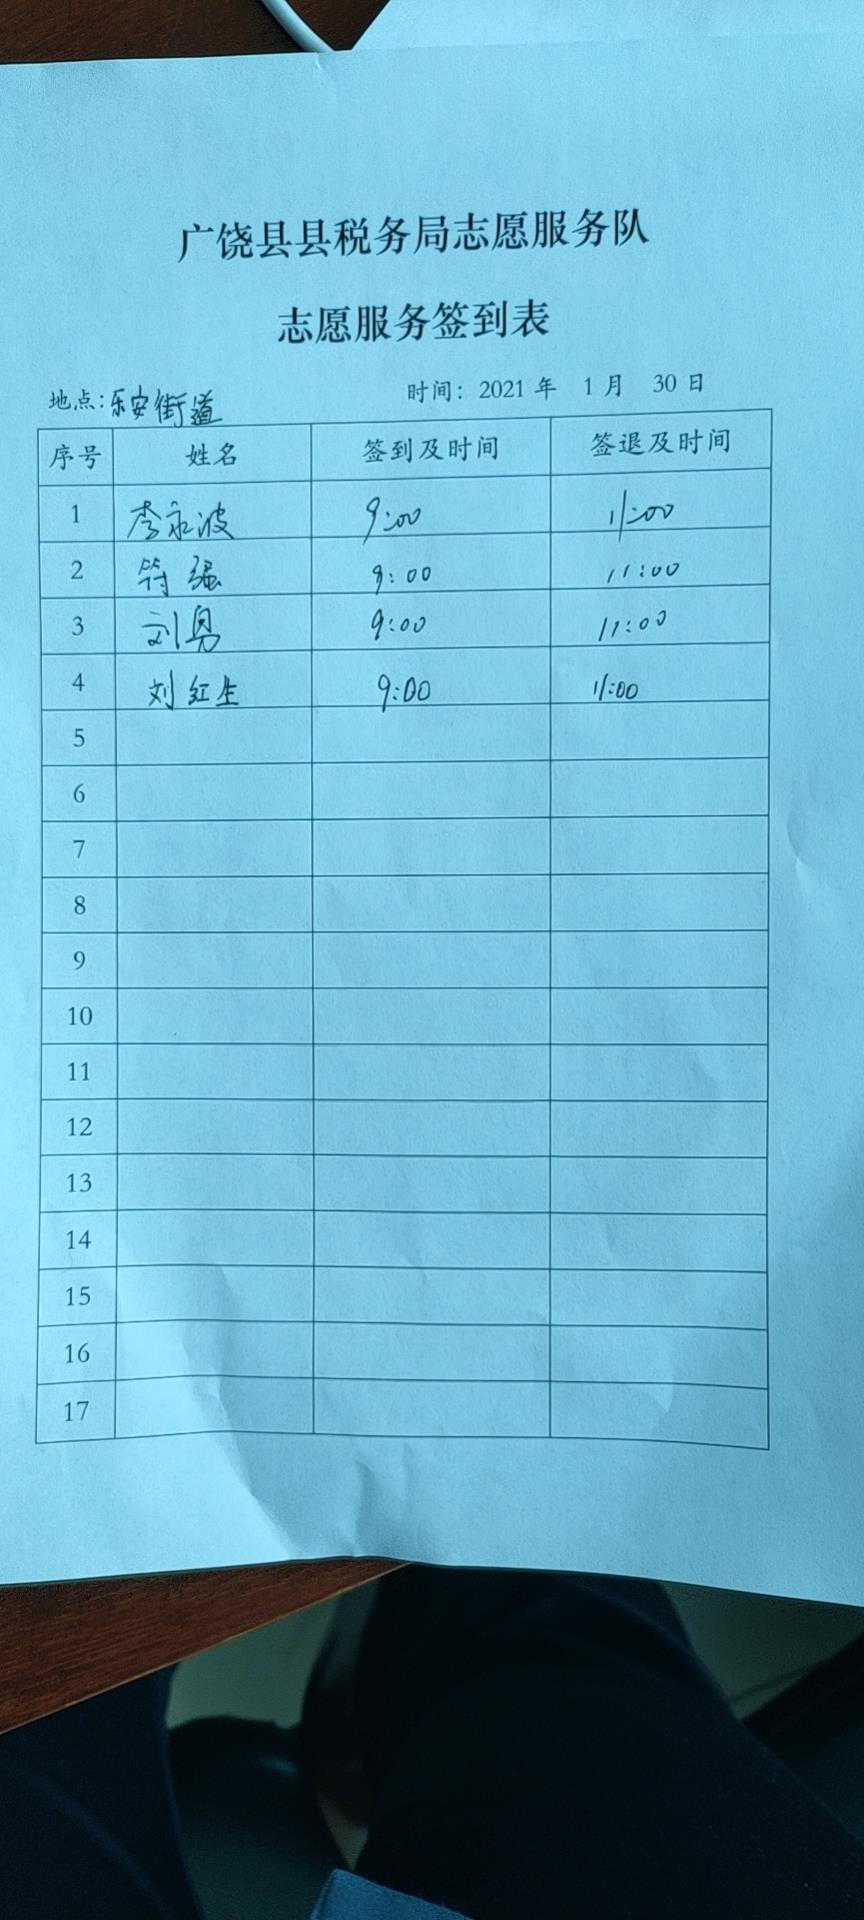 广饶县县税务局志愿服务队
志愿服务签到表
地点:乐安街道 时间: 2021 年 1 月 30 日
序号 姓名 签到及时间 签退及时间
1 李永波 9:00 11:00
2 符强 9:00 11:00
3 刘勇 9:00 11:00
4 刘红生 9:00 11:00
5
6
7
8
9
10
11
12
13
14
15
16
17